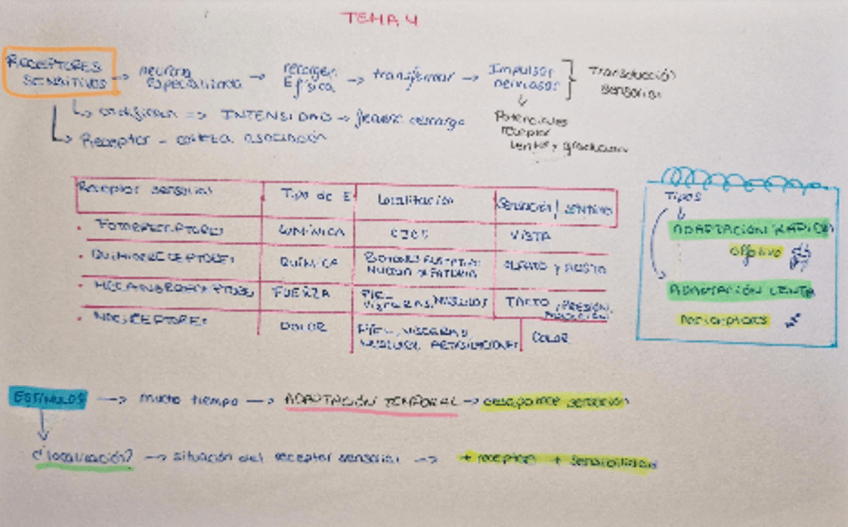 TEMA 4
RECEPTORES SENSITIVOS → neurona especializada → recogen E física → transformar → Impulsos nerviosos } Transducción sensorial
→ codifican => INTENSIDAD → descarga
→ Receptor - corteza asociación
Potenciales receptor lentos y graduados
Receptor sensorial | Tipo de E | Localización | Sensación / sentido
• FOTORRECEPTORES | LUMÍNICA | OJOS | VISTA
• QUIMIORRECEPTORES | QUÍMICA | BOTONES GUSTATIVOS MUCOSA OLFATORIA | OLFATO y GUSTO
• MECANORRECEPTORES | FUERZA | PIEL, VISCERAS, MÚSCULOS | TACTO, PRESIÓN,
• NOCICEPTORES | DOLOR | PIEL, VISCERAS, MÚSCULOS, ARTICULACIONES | DOLOR
Tipos
ADAPTACIÓN RÁPIDA
olfativo
ADAPTACIÓN LENTA
nociceptores
ESTÍMULOS → mucho tiempo → ADAPTACIÓN TEMPORAL → desaparece sensación
¿localización? → situación del receptor sensorial → + receptores + sensibilidad